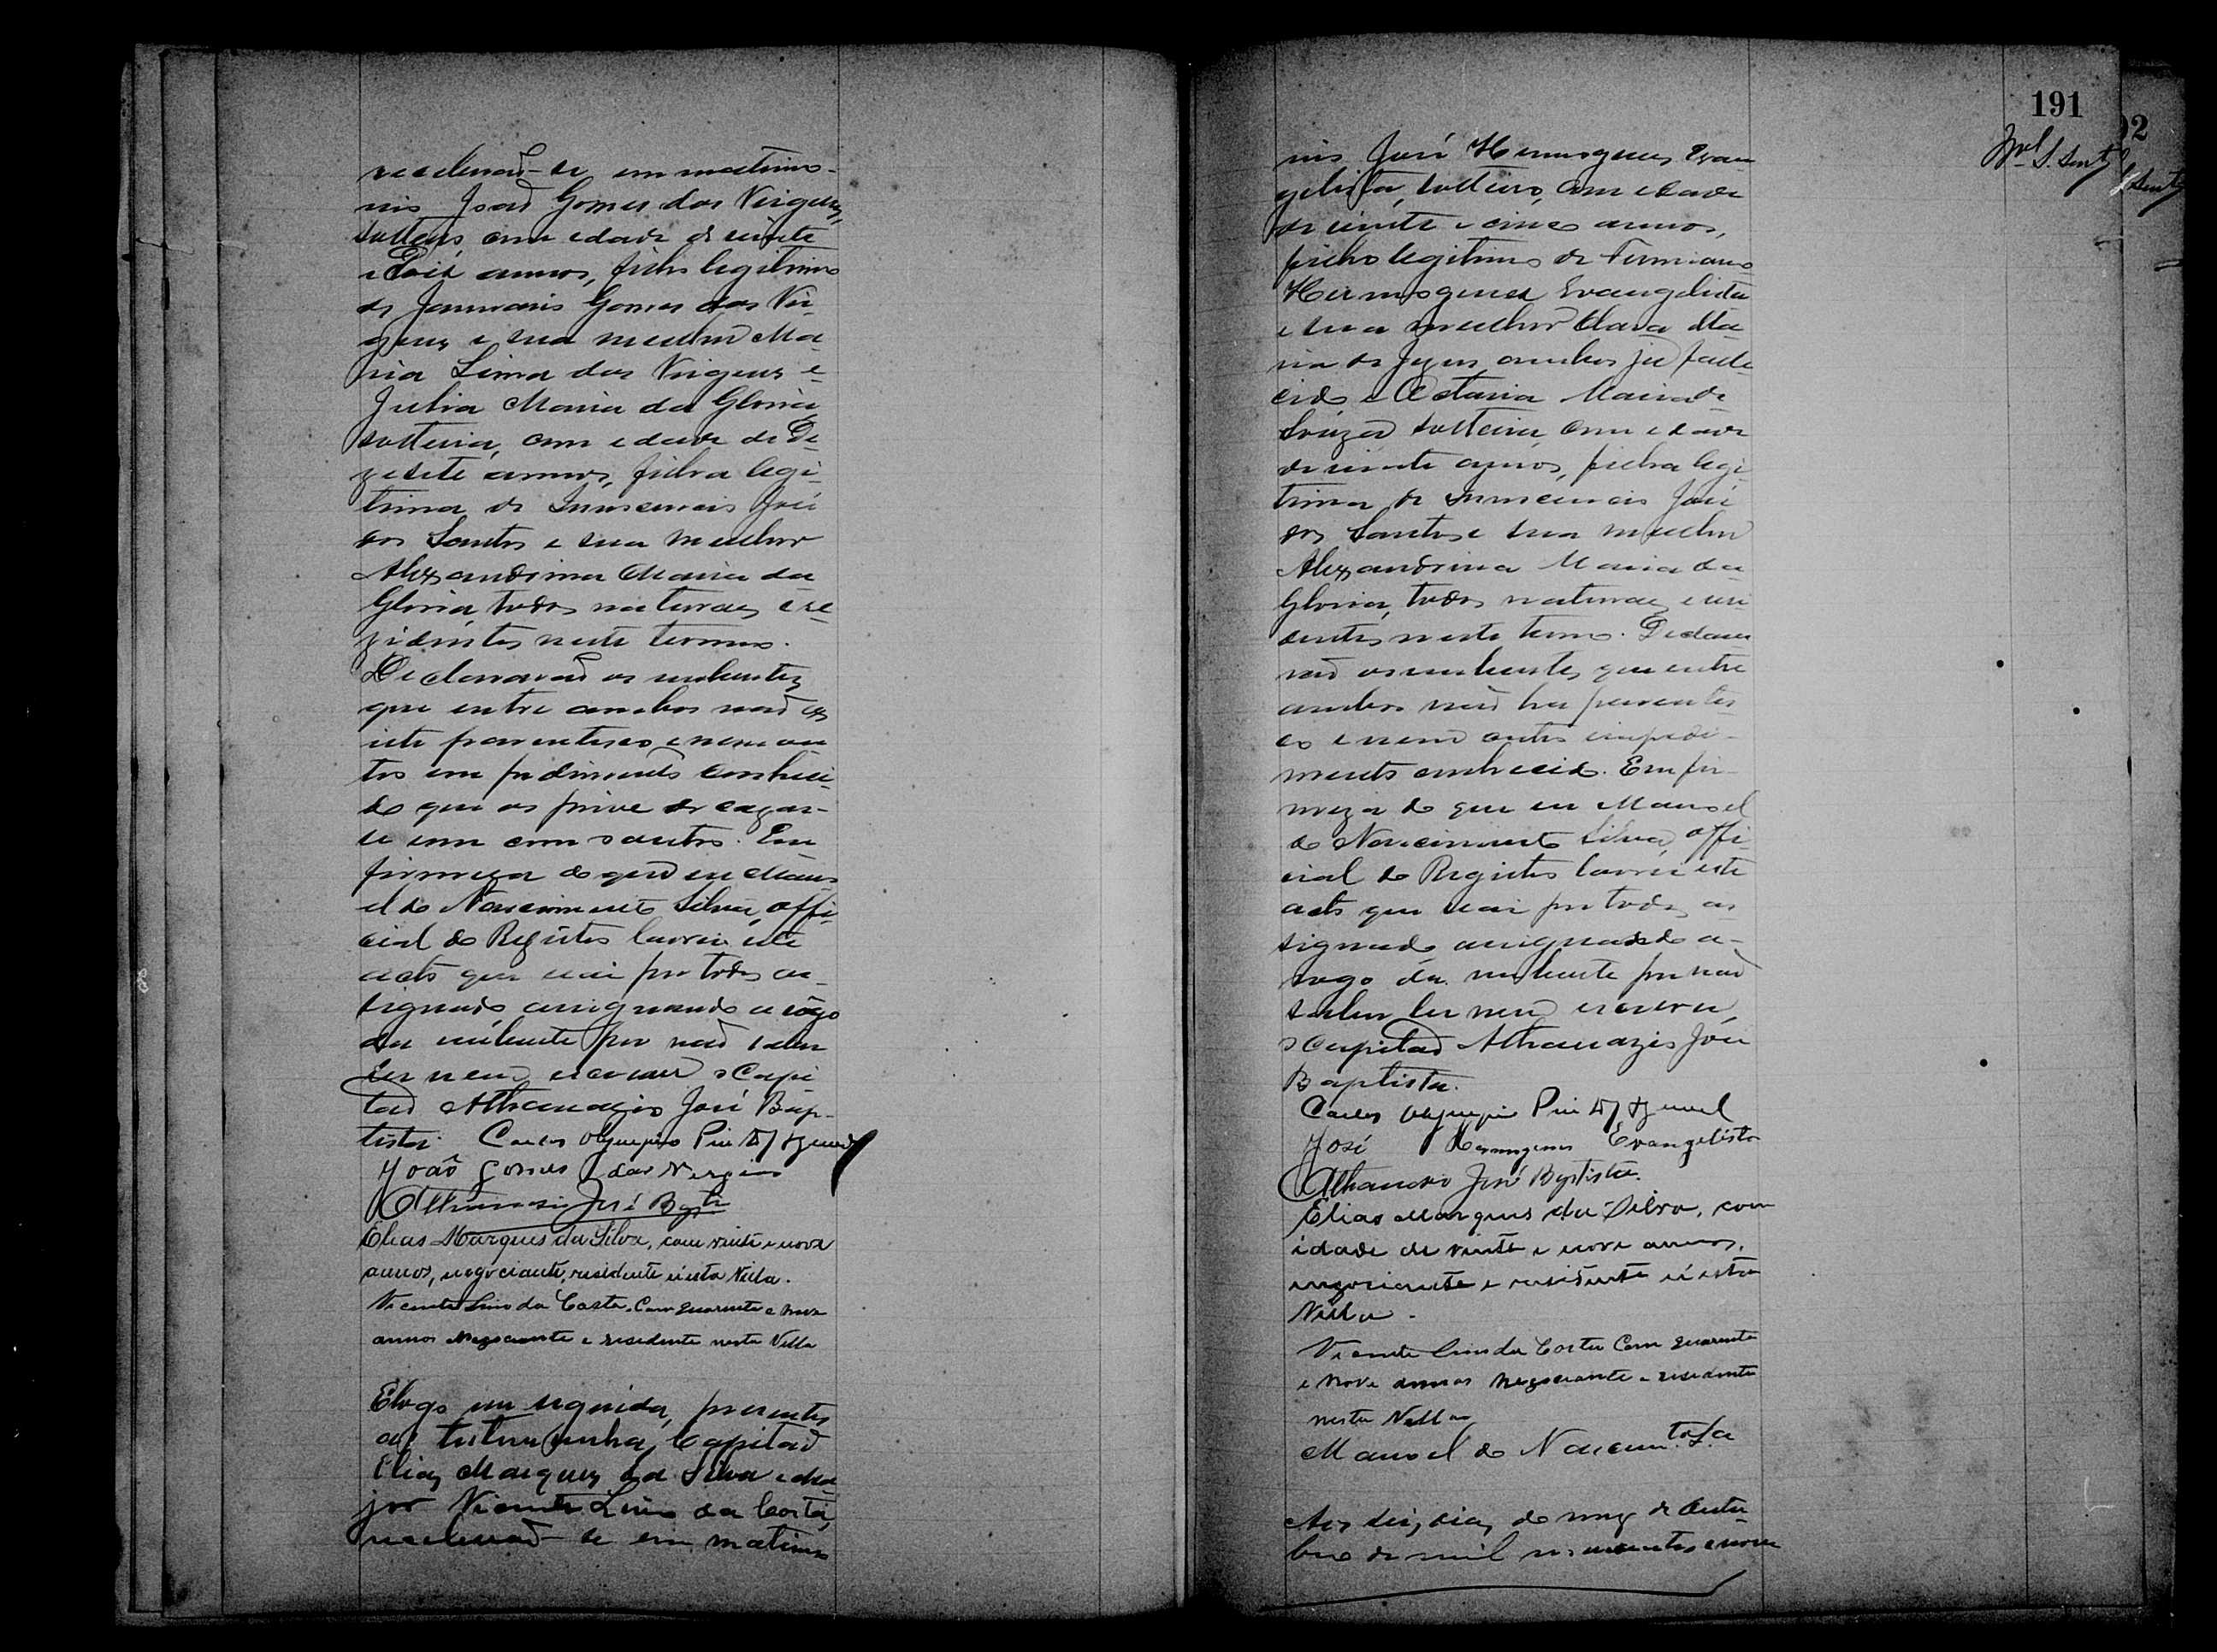 receberaõ-se em matrimo-
nio João Gomes das Virgens,
solteiro com edade de vinte
e dois annos, filho legitimo
de Januario Gomes das Vir-
gens e sua mulher Ma-
ria Lima das Virgens e
Julia Maria da Gloria
solteira, com edade de De-
zesete annos, filha legi-
tima de Innocencio José
dos Santos e sua mulher
Alexandrina Maria da
Gloria, todos naturaes e re-
zidentes neste termo.
Declararaõ os nubentes
que entre ambos naõ ex-
iste parentesco e nem ou-
tro impedimento conheci-
do que os prive de cazar-
se um com o outro. Em
firmeza do que eu Mano-
el do Nascimento Silva, offi-
cial do Registro lavrei este
acto que vai por todos as-
signado assignando a rôgo
da nubente por naõ saber
ler nem escrever o Capi-
taõ Athanazio José Bap-
tista. Carlos Olympio
João Gomes das Virgens
Athanasio José Bapta
Elias Marques da Silva, com vinte e nove
annos, negociante, residente n'esta Villa.
Vicente Lino da Costa, Com quarenta e nove
annos Negociante e residente nesta Villa
E logo em seguida, presentes
as testemunhas, Capitaõ
Elias Marques da Silva e Ma-
jor Vicente Lino da Costa,
receberaõ-se em matrimo
191
nio José Hermogenes Evan
gelista, solteiro, com edade
de vinte e cinco annos,
filho legitimo de Firmiano
Hermogenes Evangelista
e sua mulher Clara Ma-
ria de Jezus, ambos já falle-
cidos e Octavia Maria de
Souza solteira, com edade
de vinte annos, filha legi-
tima de Innocencio José
dos Santos e sua mulher
Alexandrina Maria da
Gloria, todos naturaes e resi-
dentes neste termo. Declara-
raõ os nubentes que entre
ambos naõ ha parentes-
co e nem outro impedi-
mento conhecido. Em fir-
meza do que eu Manoel
do Nascimento Silva, offi-
cial do Registro lavrei este
acto que vai por todos as-
signado, assignando a-
rogo da nubente por naõ
saber ler nem escrever,
o Capitaõ Athanazio José
Baptista.
Carlos Olympio
José Hermogenes Evangelista
Athanasio José Baptista.
Elias Marques da Silva, com
idade de vinte e nove annos,
negociante e residente n'esta
Villa.
Vicente Lino da Costa Com quarenta
e nove annos Negociante e residente
nesta Villa
Manoel do Nascimto Sa
Aos seis dias do mez de Outu-
bro de mil novecentos e nove